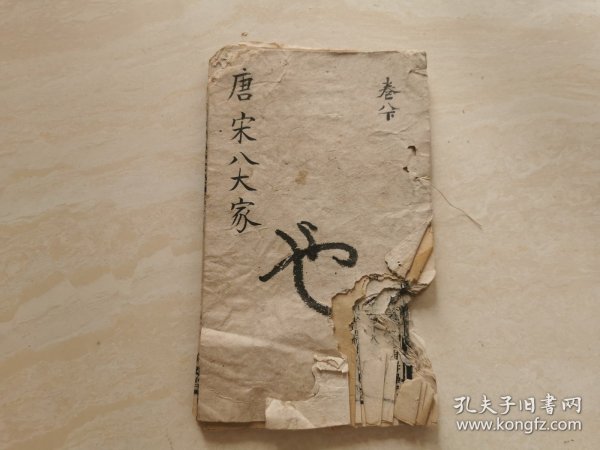 唐宋八大家
卷八下
也
孔夫子旧書网
www.kongfz.com